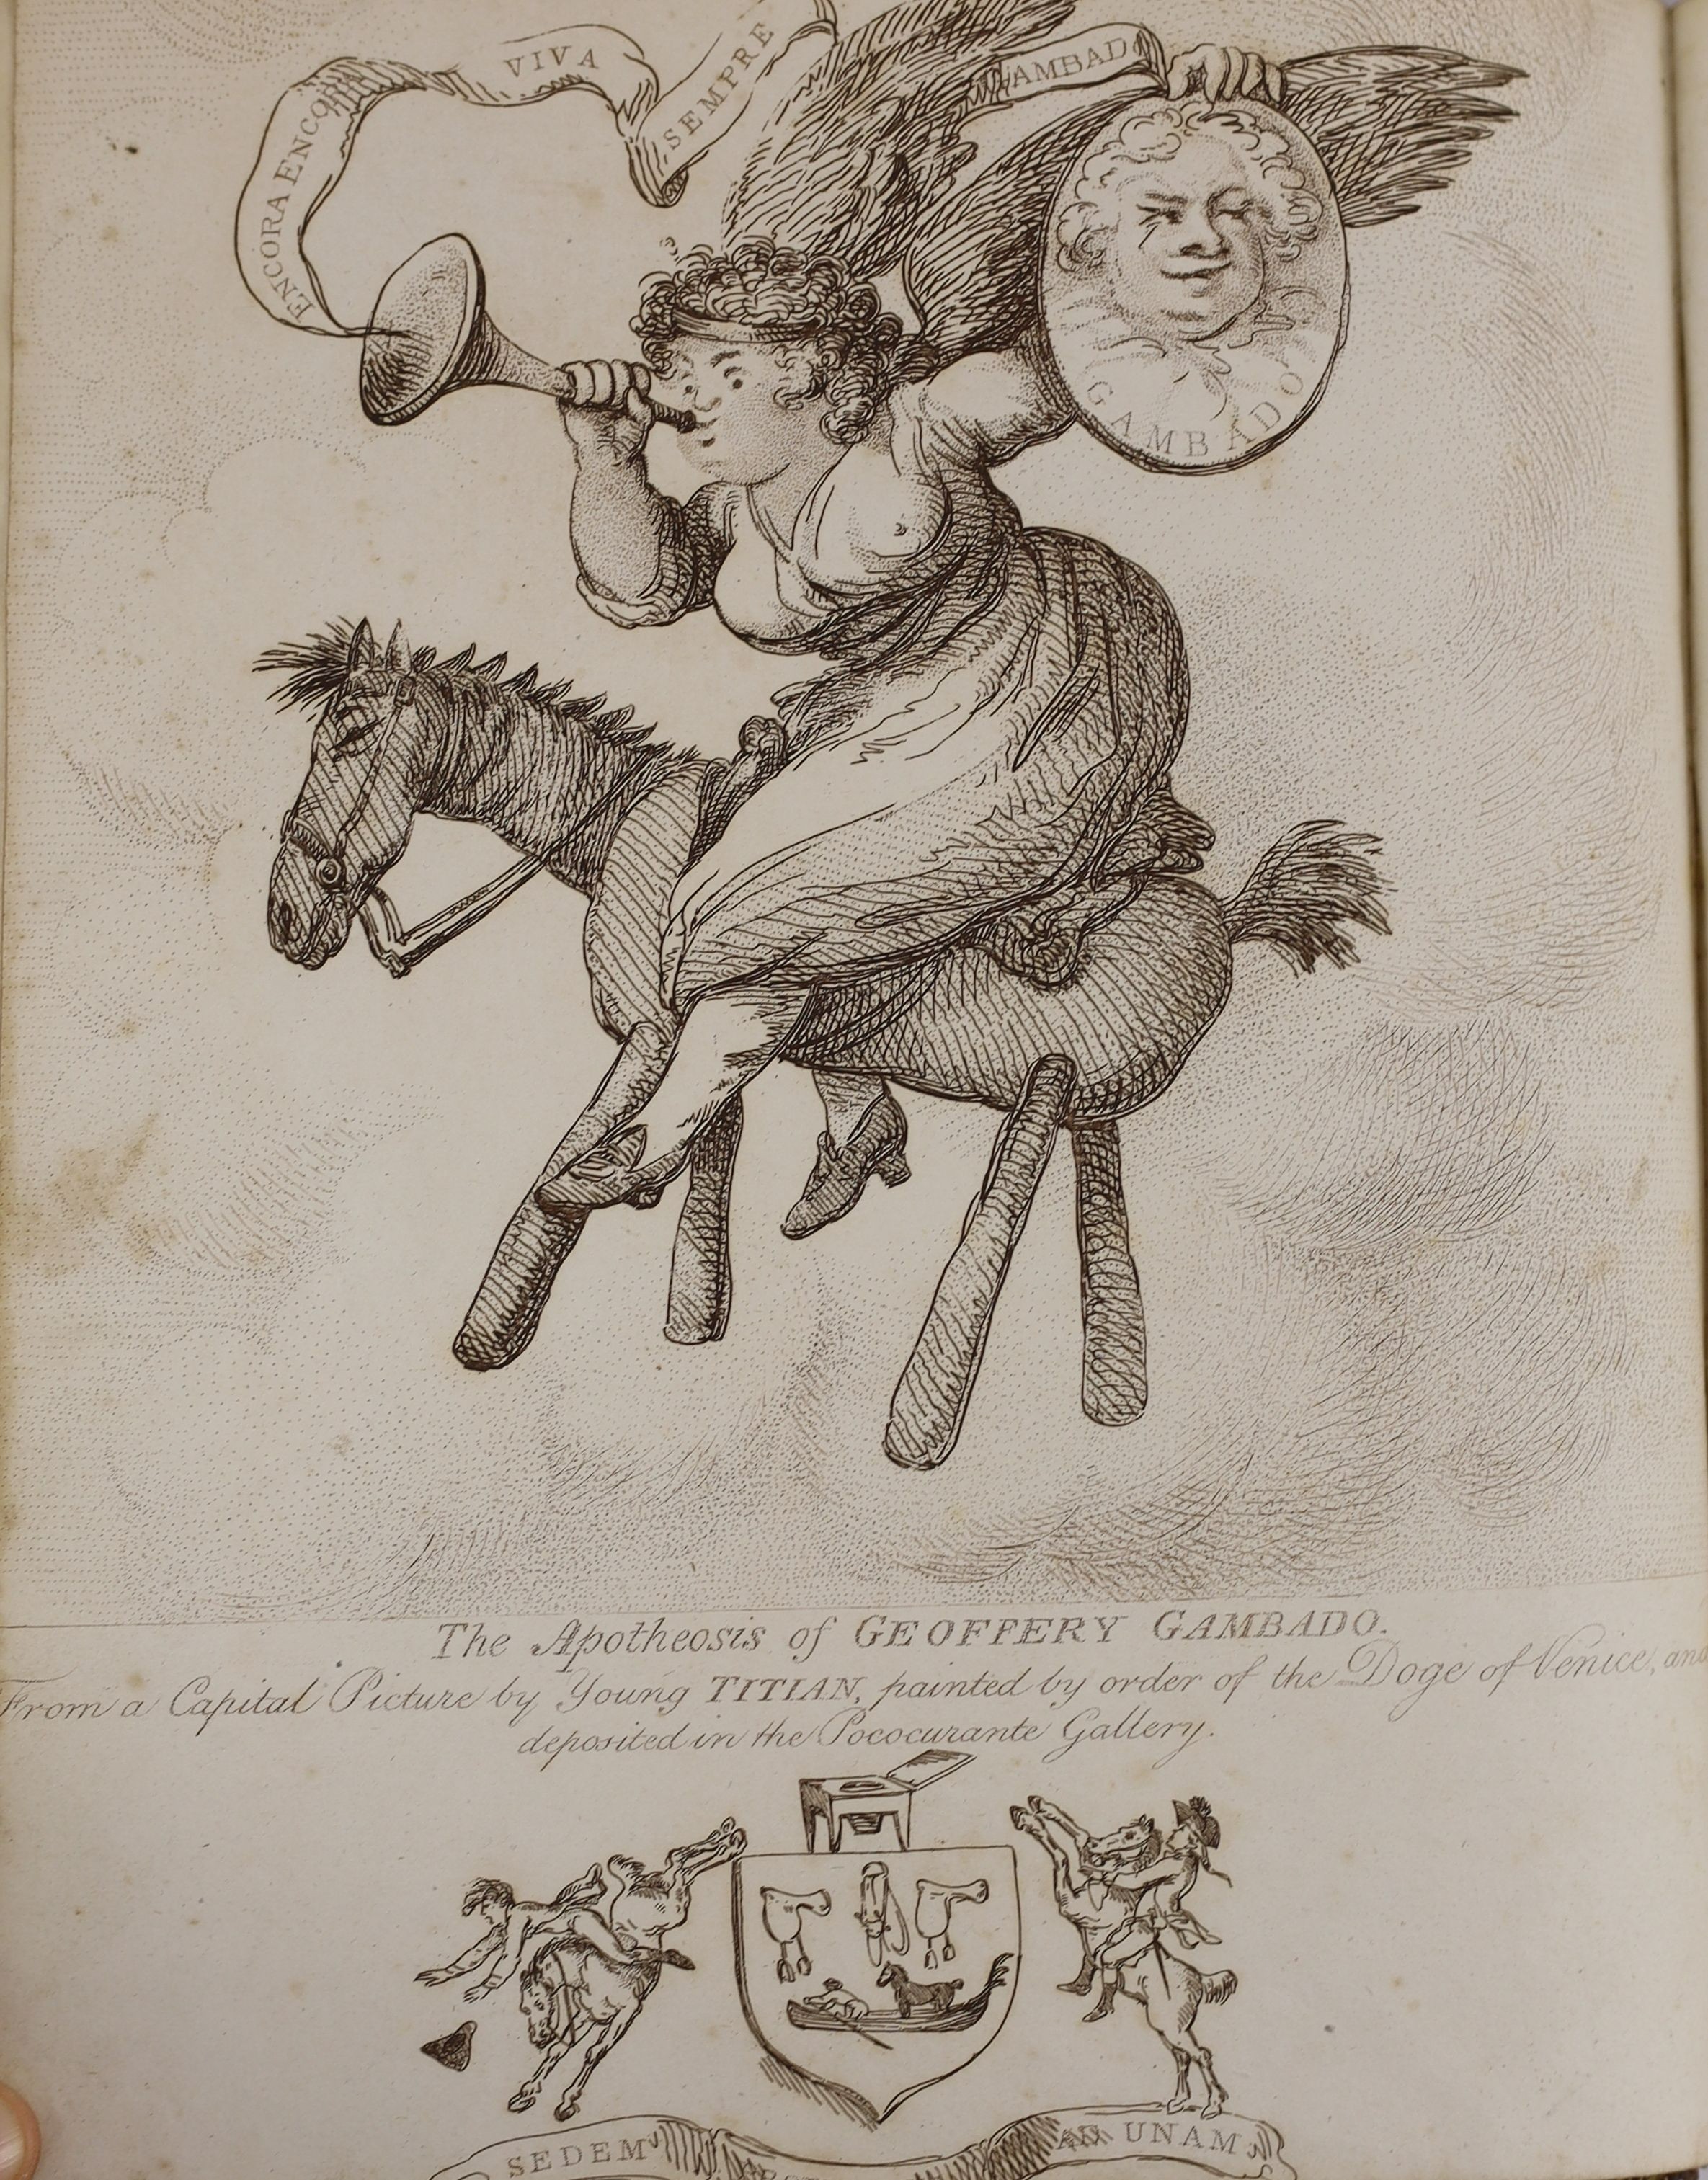 ENCORA ENCORA
VIVA
SEMPRE
GAMBADO
GAMBADO
The Apotheosis of GEOFFERY GAMBADO.
From a Capital Picture by Young TITIAN, painted by order of the Doge of Venice, and
deposited in the Pococurante Gallery.
SEDEM
AD UNAM